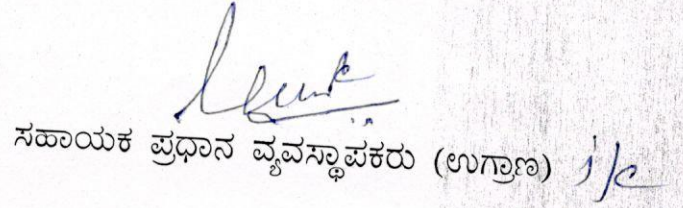 ಸಹಾಯಕ ಪ್ರಧಾನ ವ್ಯವಸ್ಥಾಪಕರು (ಉಗ್ರಾಣ) i/c